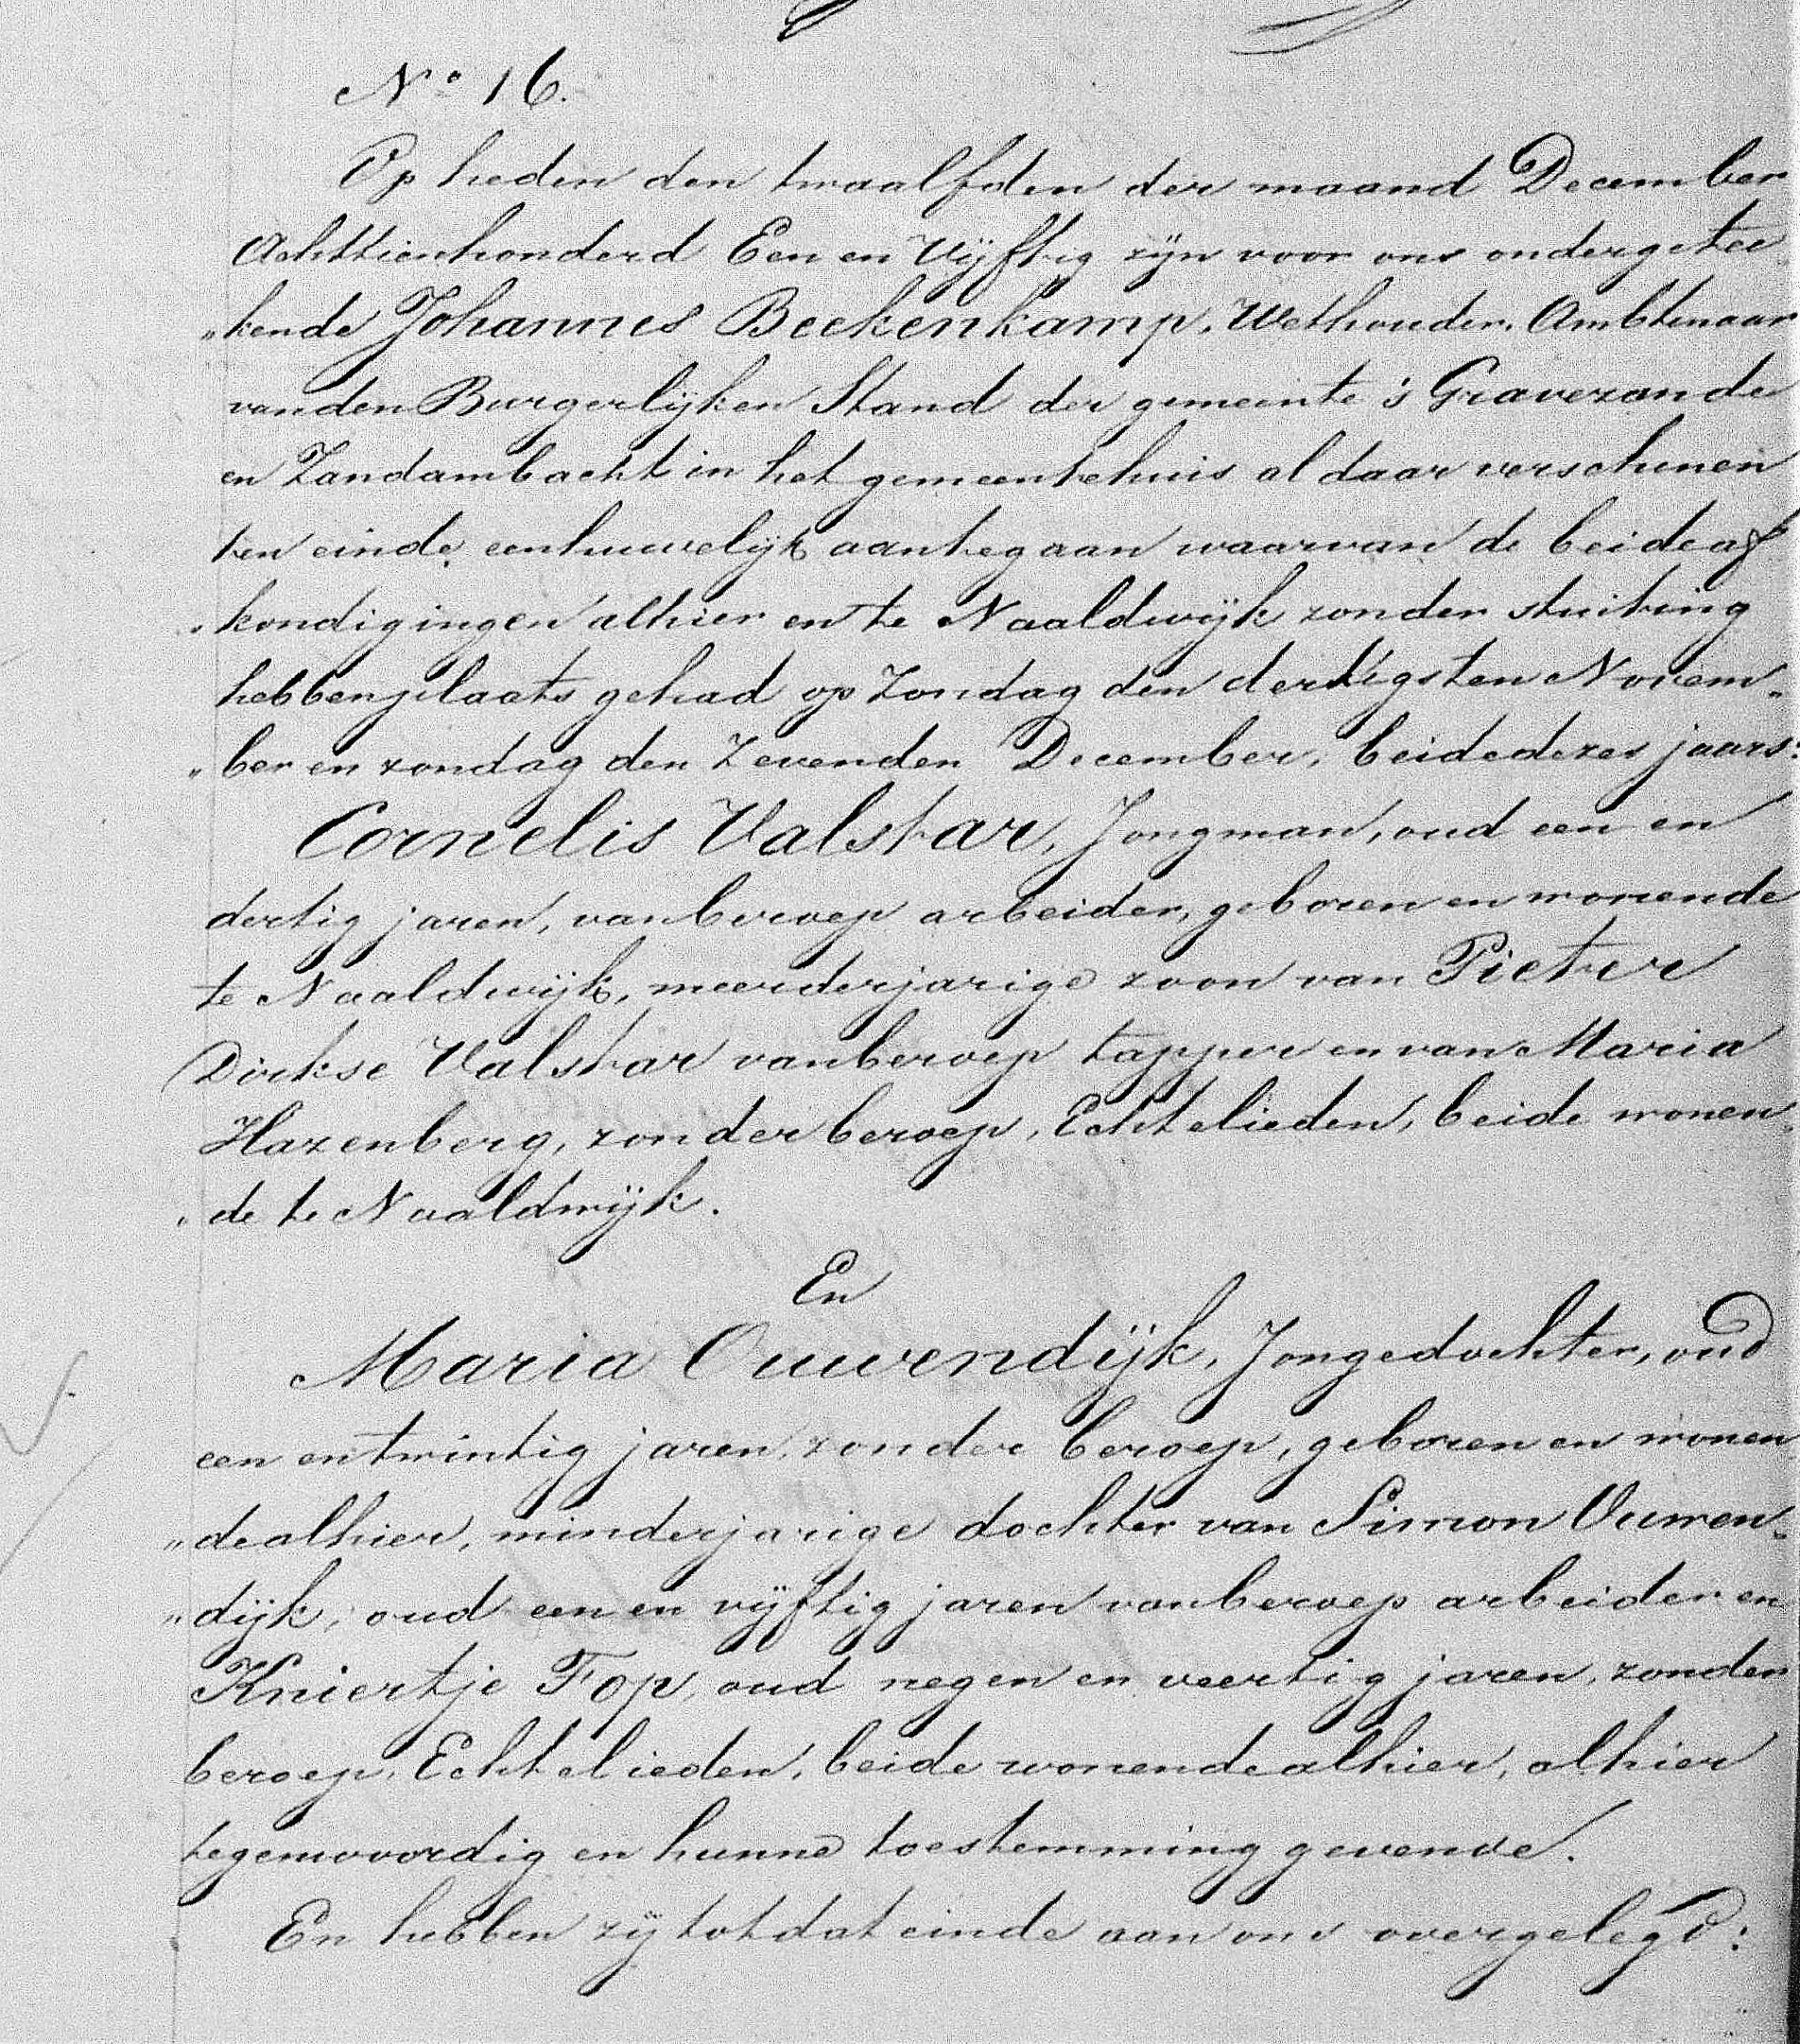 No 16.
Op heden den twaalfden der maand December
Achttienhonderd Een en Vijftig zijn voor ons ondergetee„
„kende Johannes Beekenkamp, Wethouder, Ambtenaar
van den Burgerlijken Stand der gemeente 's Gravezande
en Zandambacht in het gemeentehuis aldaar verschenen
ten einde een huwelijk aantegaan waarvan de beide af
„kondigingen alhier en te Naaldwijk zonder stuiting
hebben plaats gehad op Zondag den dertigsten Novem„
„ber en zondag den Zevenden December, beide dezes jaars:
Cornelis Valstar, Jongman, oud een en
dertig jaren, van beroep arbeider, geboren en wonende
te Naaldwijk, meerderjarige zoon van Pieter
Dirkse Valstar van beroep tapper en van Maria
Hazenberg, zonder beroep, Echtelieden, beide wonen„
„de te Naaldwijk.
En
Maria Ouwendijk, Jongedochter, oud
een en twintig jaren, zonder beroep, geboren en wonen„
„de alhier, minderjarige dochter van Simon Ouwen„
„dijk, oud een en vijftig jaren van beroep arbeider en
Kniertje Fop, oud negen en veertig jaren, zonder
beroep, Echtelieden, beide wonende alhier, alhier
tegenwoordig en hunne toestemming gevende.
En hebben zij tot dat einde aan ons overgelegd: